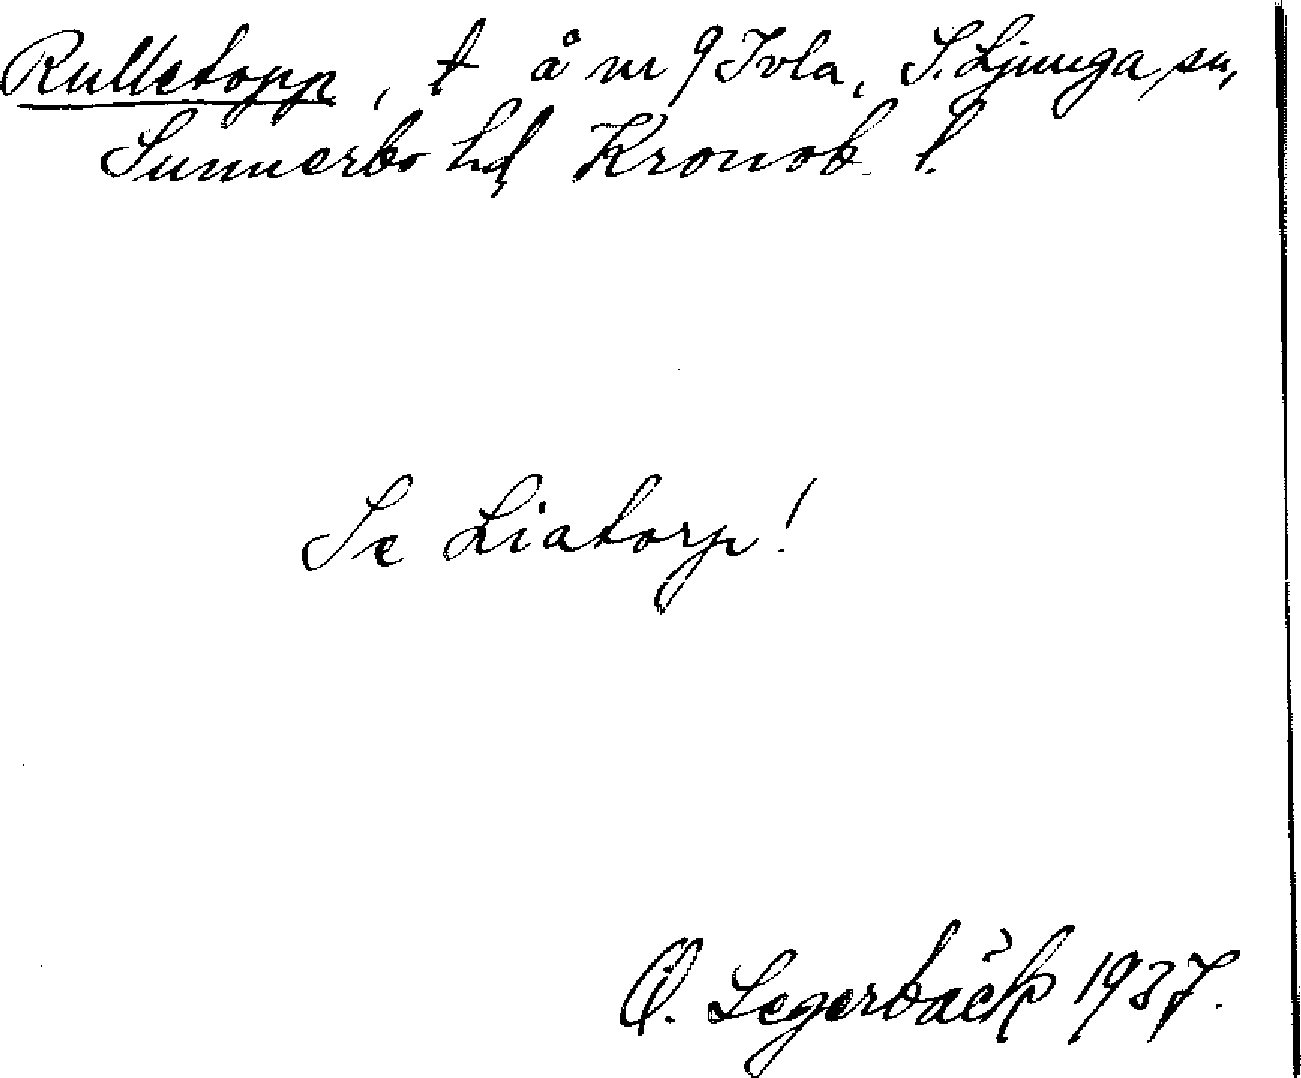 Rulletopp, t å nr 9 Ivla, S. Ljunga sn,
Sunnerbo hd, Kronob. l.
Se Liatorp!
O. Legerbäck 1937.